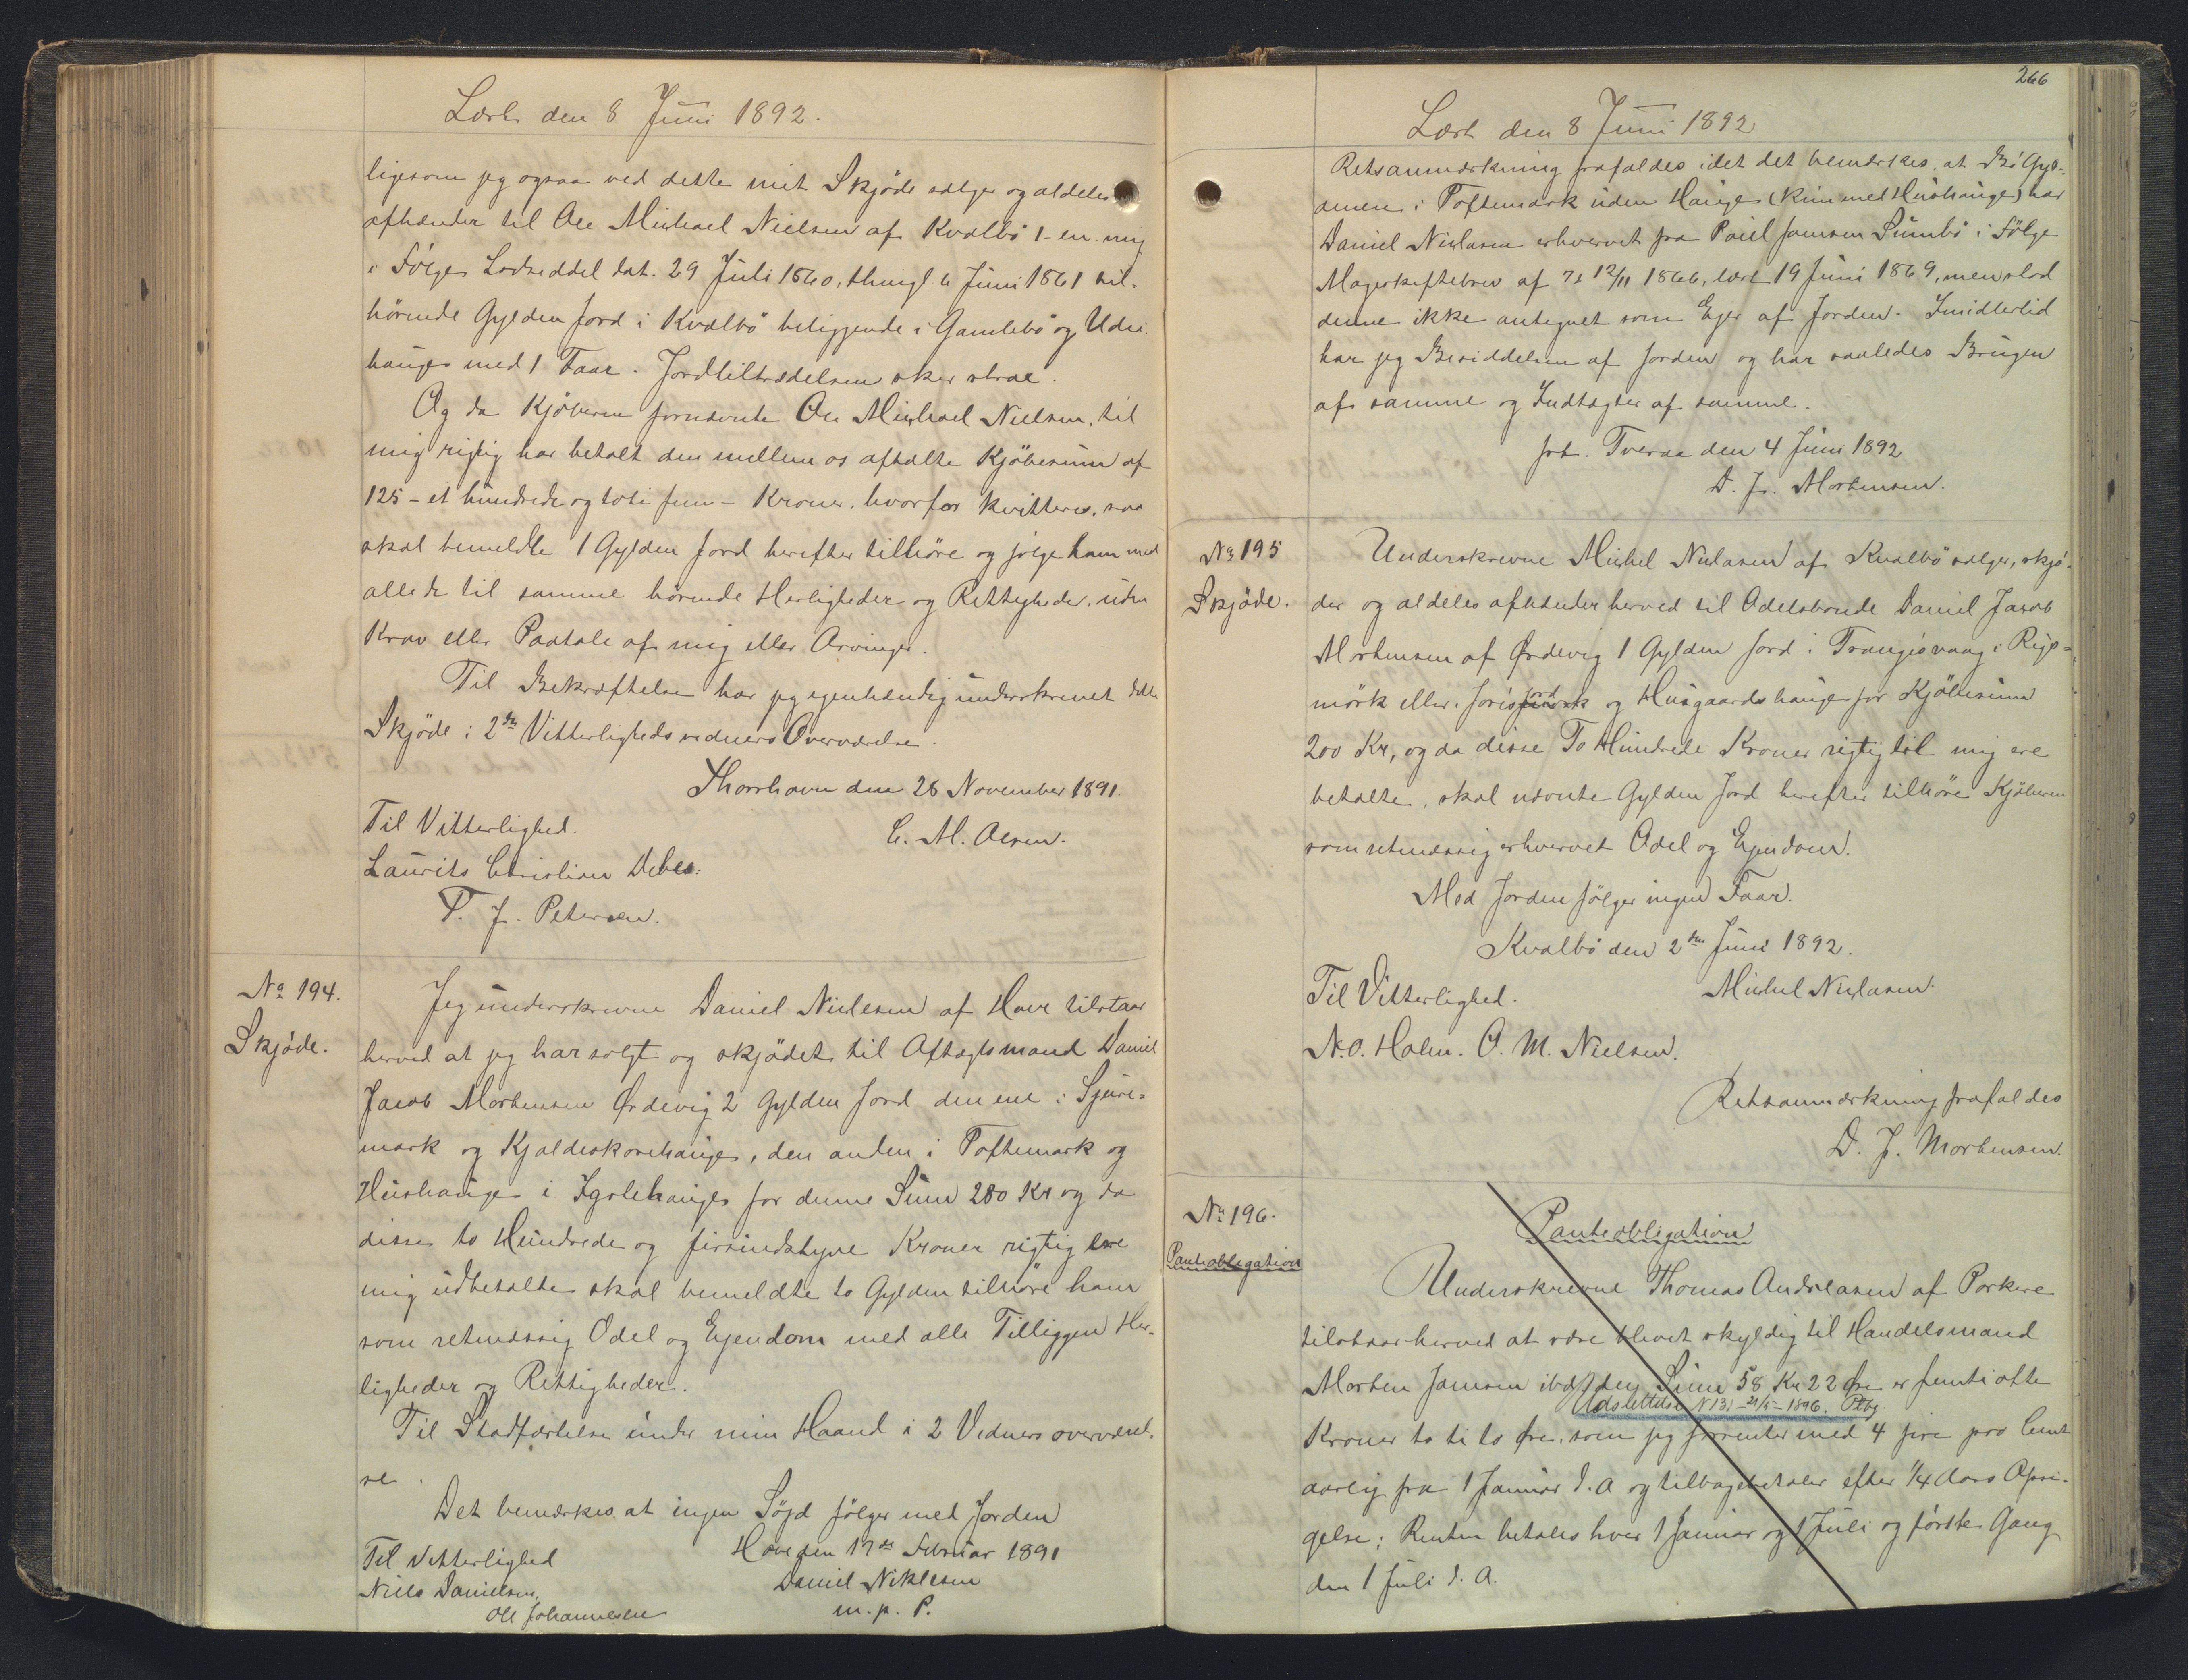 Læst den 8 Juni 1892.
ligesom jeg ogsaa ved dette mit Skjöde sælger og aldeles
afhænder til Ole Michael Nielsen af Kvalbö 1 - en - mig
i Fölge Lodseddel dat. 29 Juli 1860, thingl 6 Juni 1861 til-
hörende Gylden Jord i Kvalbö beliggende i Gamlebö og Udri
hauge med 1 Faar. Jordtiltrædelsen sker strax.
Og da Kjöberen fornævnte Ole Michael Nielsen, til
mig rigtig har betalt den mellem os aftalte Kjöbesum af
125 - et hundrede og toti fem - Kroner, hvorfor kvitteres, saa
skal bemeldte 1 Gylden Jord herefter tilhöre og fölge ham med
alle de til samme hörende Herligheder og Rettigheder, uden
Krav eller Paatale af mig eller Arvinger.
Til Bekræftelse har jeg egenhændig underskrevet dette
Skjöde i 2de Vitterlighedsvidners Overværelse.
Thorshavn den 28 November 1891.
Til Vitterlighed.
C. M. Olsen.
Laurits Christian Debes.
P. J. Petersen.
No 194.
Skjöde.
Jeg underskrevne Daniel Niclesen af Hove tilstaar
herved at jeg har solgt og skjödet til Aftægtsmand Daniel
Jacob Mortensen Ördevig 2 Gylden Jord den ene i Sjure-
mark og Kjaldeskorehauge, den anden i Toftemark og
Hushauge i Igolehauge for denne Sum 280 Kr og da
disse to Hundrede og firsindstyve Kroner rigtig ere
mig udbetalte skal bemeldte to Gylden tilhöre ham
som retmæssig Odel og Ejendom med alle Tilliggen Her-
ligheder og Rettigheder.
Til Stadfæstelse under min Haand i 2 Vidners overværel-
se.
Det bemærkes at ingen Söjd fölger med Jorden
Til Vitterlighed
Hove den 17de Februar 1891
Niels Danielsen,
Daniel Niklesen
Ole Johannesen
m. p. P.
266
Læst den 8 Juni 1892
Retsanmærkning frafaldes idet det bemærkes, at Bö Gyl-
denen i Toftemark uden Hauge (kun med Hushauge) har
Daniel Niclasen erhvervet fra Poul Joensen Sumbö i Fölge
Mageskiftebrev af 12/11 1866, læst 19 Juni 1869, men stod
denne ikke antegnet som Ejer af Jorden. Imidlertid
har jeg Besiddelsen af Jorden og har saaledes Brugen
af samme og Indtægter af samme.
pt. Tveraa den 4 Juni 1892
D. J. Mortensen.
No 195
Skjöde.
Underskrevne Michel Niclasen af Kvalbö sælger, skjö-
der og aldeles afhænder herved til Odelsbonde Daniel Jacob
Mortensen af Ördevig 1 Gylden Jord i Trangisvaag i Rigs-
mörk eller Joris jord og Husgaardshauge for Kjöbesum
200 Kr, og da disse To Hundrede Kroner rigtig til mig ere
betalte, skal nævnte Gylden Jord herefter tilhöre Kjöberen
som retmæssig erhvervet Odel og Ejendom.
Med Jorden fölger ingen Faar.
Kvalbö den 2den Juni 1892.
Til Vitterlighed.
Michel Niclasen.
N. O. Holm. O. M. Nielsen.
Retsanmærkning frafaldes
D. J. Mortensen.
No 196.
Panteobligation
Panteobligation
Underskrevne Thomas Andreasen af Porkere
tilstaar herved at være blevet skyldig til Handelsmand
Morten Joensen ibd. den Sum 58 Kr 22 Øre er femti otte
Udslettelse N 131 - 21/5 - 1896. Ptbg.
Kroner to ti to Øre, som jeg forrenter med 4 fire pro Cent
aarlig fra 1 Januar d. A og tilbagebetaler efter 1/4 Aars Opsi-
gelse; Renten betales hver 1 Januar og 1 Juli og förste Gang
den 1 Juli d. A.